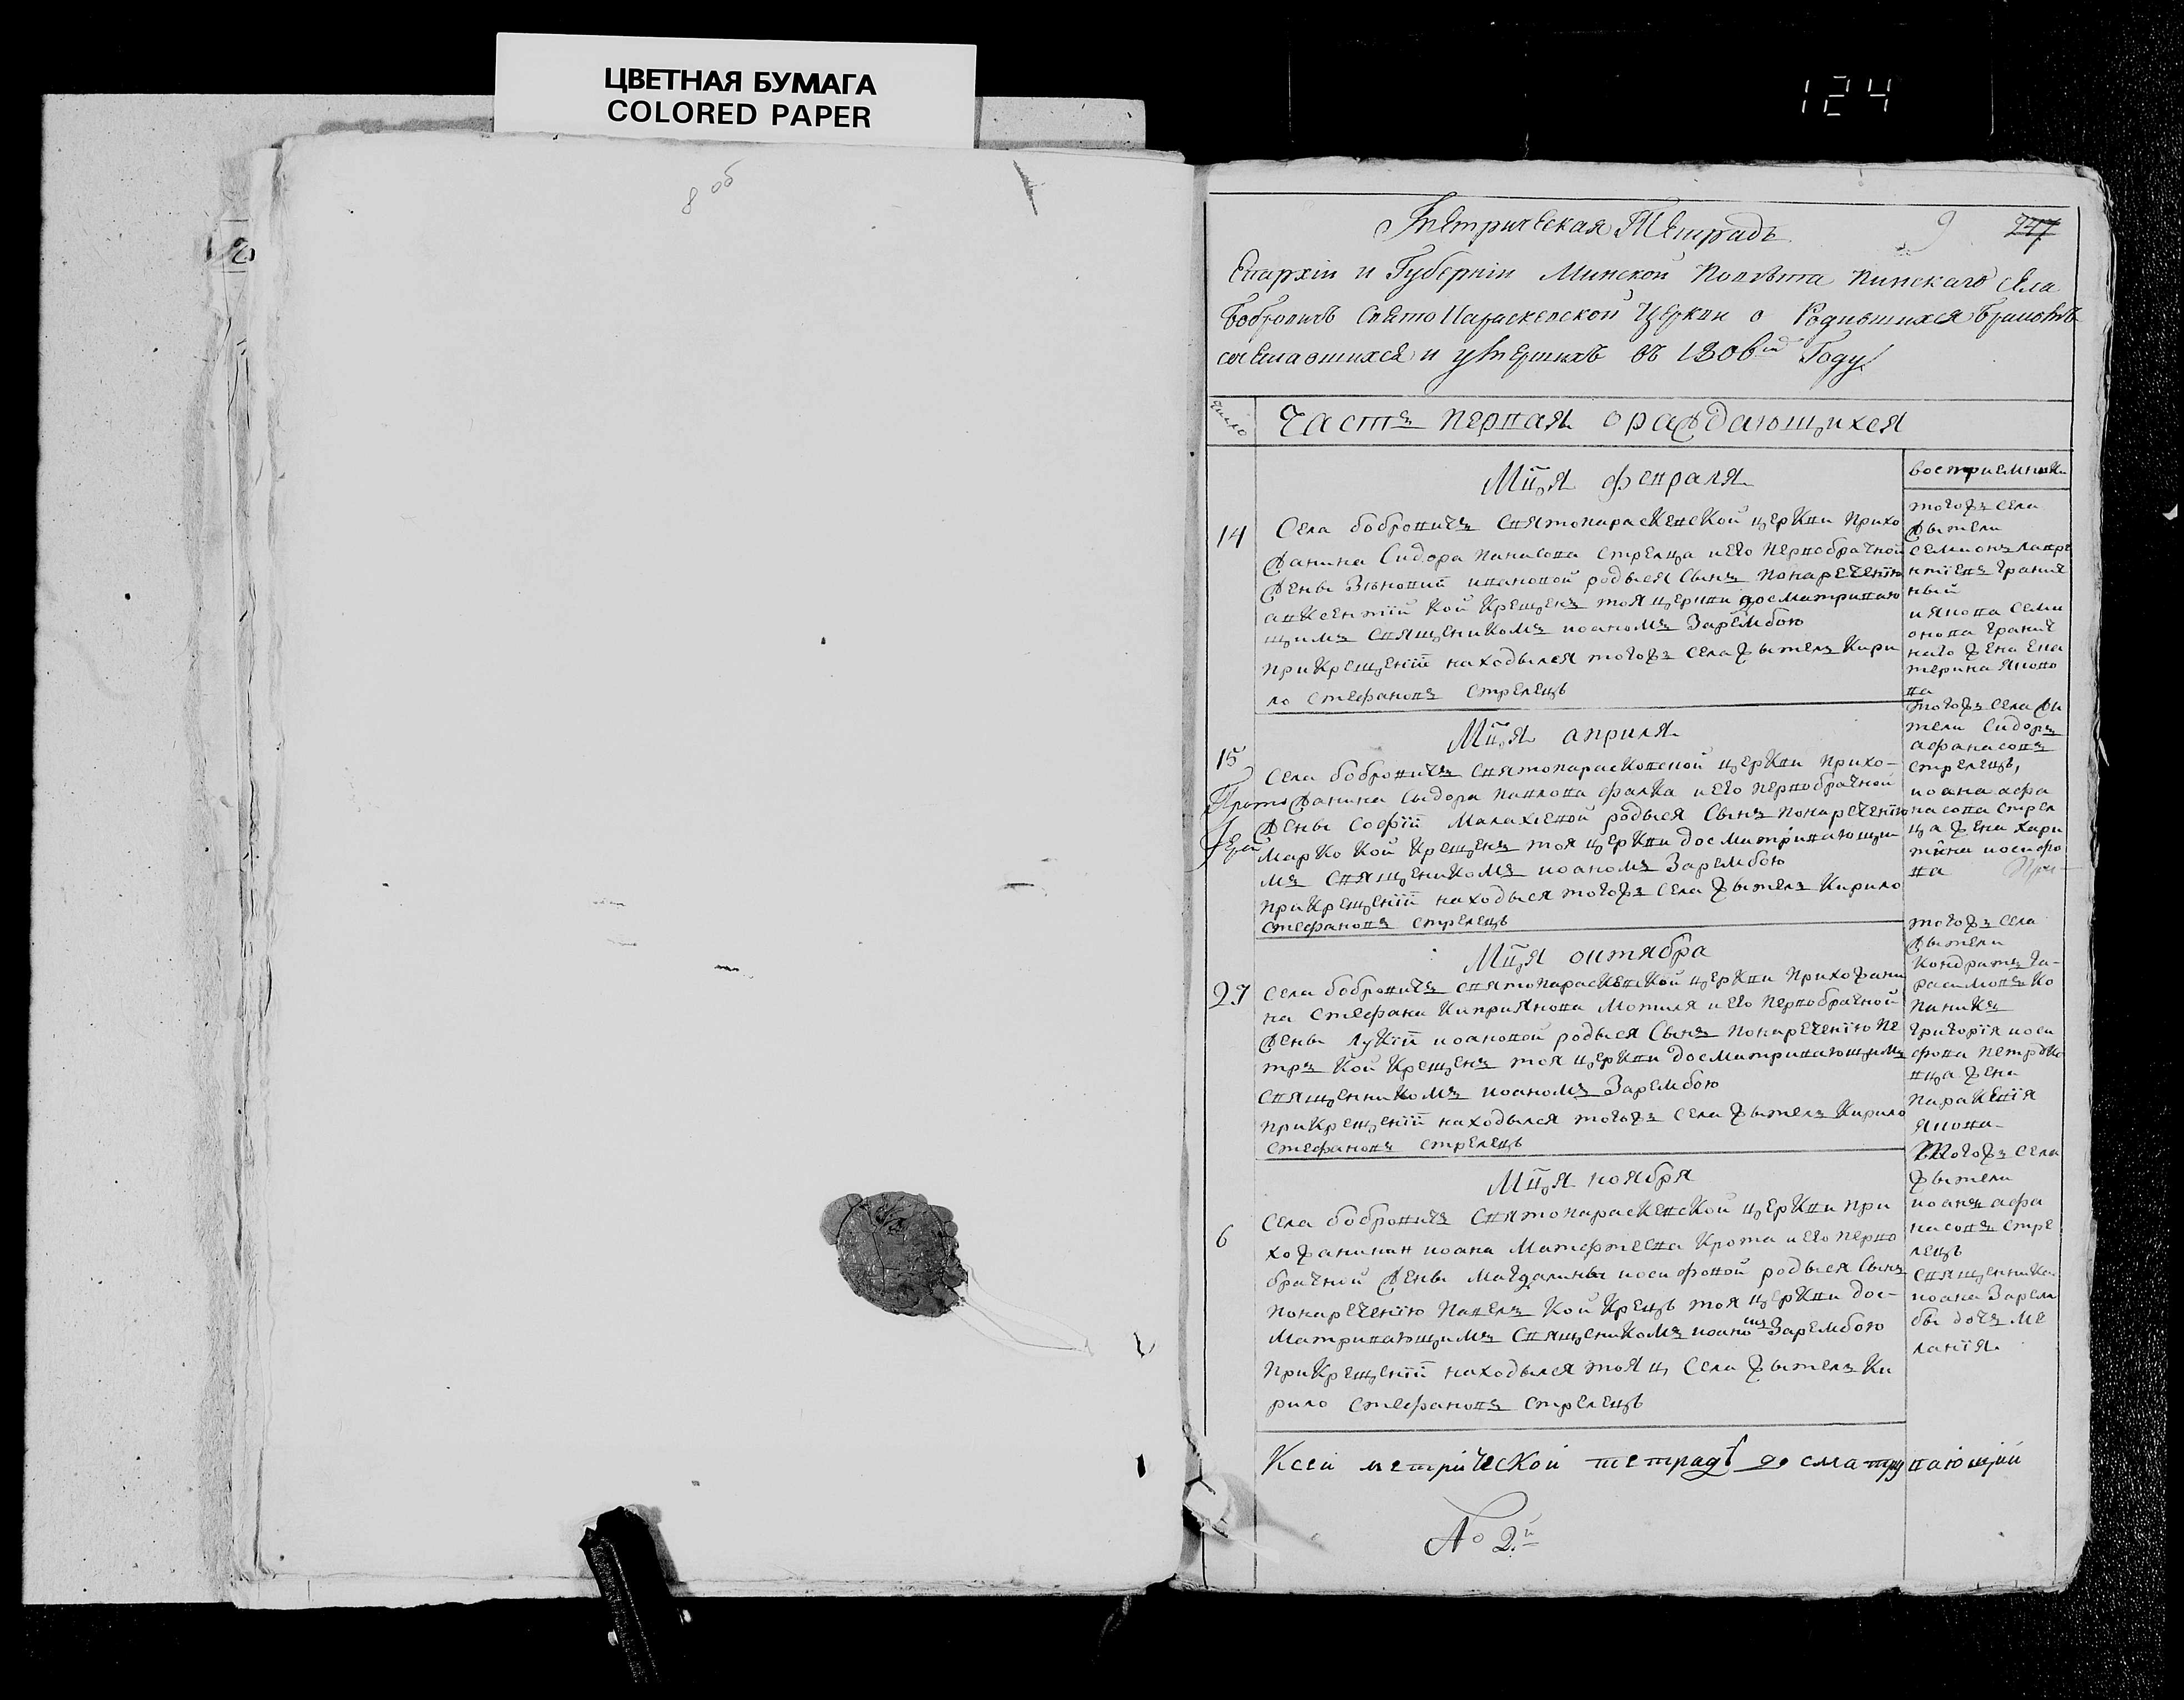 ЦВЕТНАЯ БУМАГА
COLORED PAPER
124
8 об
9 247
Метрическая Тетрадь
Епархіи и Губерніи Минской Повѣта Пинскаго Села
Бобровичъ Свято Параскевской Церкви о Родившихся Бракомъ
сочетавшихся и умершихъ въ 1806м Году
число
Часть первая о раждающихся
восприемники
Мця февраля
14
Села бобровичъ святопараскевской церкви прихо
жанина Сидора панасова стрельца и его первобрачной
жены Зѣновии ивановой родыся сынъ понареченію
авксентій кой крещенъ тоя церкви досматриваю
щимъ священикомъ иоаномъ Зарембою
при крещеніи находылся тогожъ села жытель Кири
ло стефановъ стрелецъ
тогожъ села
жытели
семионъ лавре
нтіевъ гранич
ный
и якова семи
онова гранич
наго жена ека
терина яково
ва
Мця априля
15
Прото
Іерей
Села бобровичъ святопарасковеной церкви прихо-
жанина сыдора павлова фалка и его первобрачной
жены софіи малахиевой родыся сынъ понареченію
марко кой крещенъ тоя церкви досматривающи
мъ священикомъ иоаномъ Зарембою
при крещеніи находыся тогожъ села жытель Кирило
стефановъ стрелецъ
тогожъ села жи
тели сидоръ
афанасовъ
стрелецъ,
иоана афа
насова стрел
ца жена хари
тина иосифо
ва При-
Мця октября
27
села бобровичъ святопараскевской церкви прихожани
на стефана киприянова мотиля и его первобрачной
жены лукіи иоановой родыся сынъ понареченію пе
тръ кой крещенъ тоя церкви досматривающимъ
священникомъ иоаномъ Зарембою
при крещеніи находылся тогожъ села жытель Кирило
стефановъ стрелецъ
тогожъ села
жытели
кондратъ га-
расимовъ ко
паникъ
григорія иоси
фова петро
вца жена
паракевія
якова-
Мця ноября
6
Села бобровичъ святопараскевской церкви при
хожанинан иоана матфеева крота и его перво
брачной жены магдалины иосифовой родыся сынъ
понареченію павелъ кой крещъ тоя церкви дос-
матривающимъ священикомъ иоаномъ Зарембою
при крещеніи находылся тоя ц села жытель Ки
рило стефановъ стрелецъ
тогожъ села
жытели
иоанъ афа
насовъ стре
лецъ
священника
иоана Зарем
бы дочъ ме
ланія
К сей метрической тетрадѣ досматривающий
No 2й